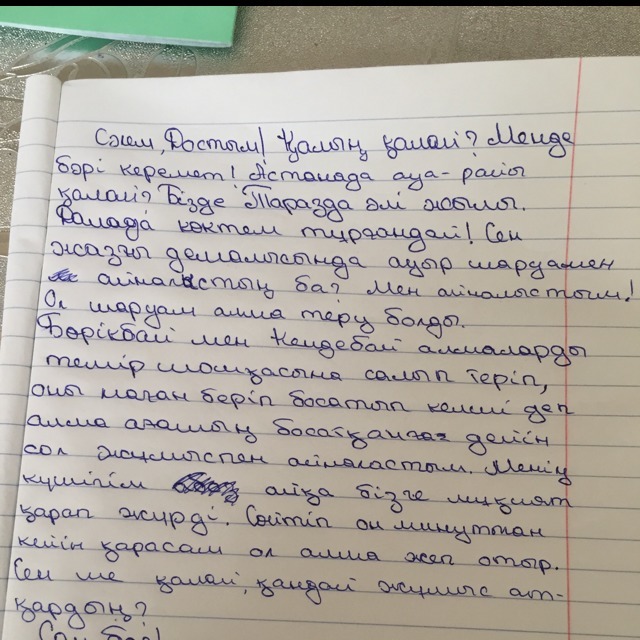 Сәлем, Достым! Қалың қалай? Менде
бәрі керемет! Астанада ауа-райы
қалай? Бізде Таразда әлі жылы.
Далада көктем тұрғандай! Сен
жазғы демалысында ауыр шаруамен
айналыстың ба? Мен айналыстым!
Ол шаруам алма теру болды.
Берікбай мен Кендебай алмаларды
темір шошқасына салып теріп,
оны маған беріп босатып келші деп
алма ағашың босатқанға дейін
сол жұмыспен айналастым. Менің
күшігім айқа бізге мұқият
қарап жүрді. Сөйтіп он минуттан
кейін қарасам ол алма жеп отыр.
Сен ше қалай, қандай жұмыс ат-
қардың?
Сау бол!